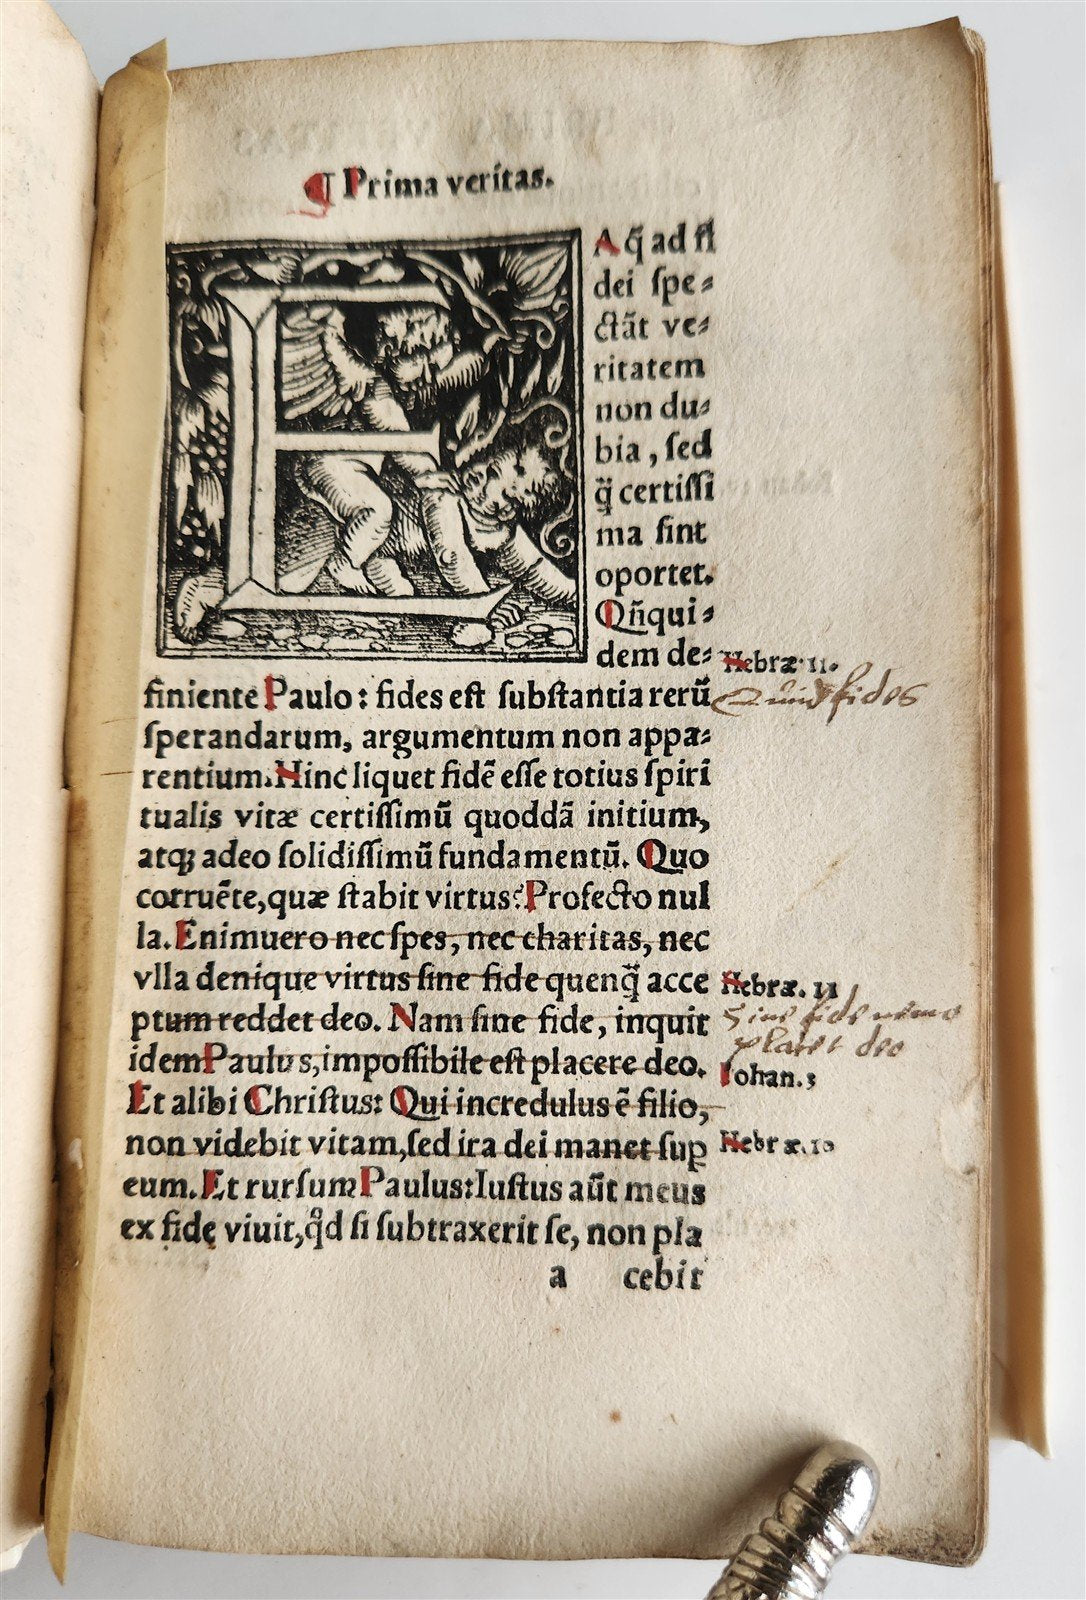 ¶ Prima veritas.
EA q̃ ad fi
dei ſpe⸗
ctãt ve⸗
ritatem
non du⸗
bia, ſed
q̃ certiſſi
ma ſint
oportet.
Qñqui⸗
dem de⸗
finiente Paulo: fides eſt ſubſtantia rerũ
ſperandarum, argumentum non appa⸗
rentium. Hinc liquet fidẽ eſſe totius ſpiri
tualis vitæ certiſſimũ quoddã initium,
atqꝫ adeo ſolidiſſimũ fundamentũ. Quo
corruẽte, quæ ſtabit virtus? Profecto nul
la. Enimuero nec ſpes, nec charitas, nec
vlla denique virtus ſine fide quenq̃ acce
ptum reddet deo. Nam ſine fide, inquit
idem Paulus, impoſſibile eſt placere deo.
Et alibi Chriſtus: Qui incredulus ẽ filio,
non videbit vitam, ſed ira dei manet ſuꝑ
eum. Et rurſum Paulus: Iuſtus aũt meus
ex fide viuit, qd̛ ſi ſubtraxerit ſe, non pla
a cebit
Hebræ. 11.
Quid fides
Hebræ. 11
Sine fide nemo
placet deo
Iohan. 3
Hebræ. 10